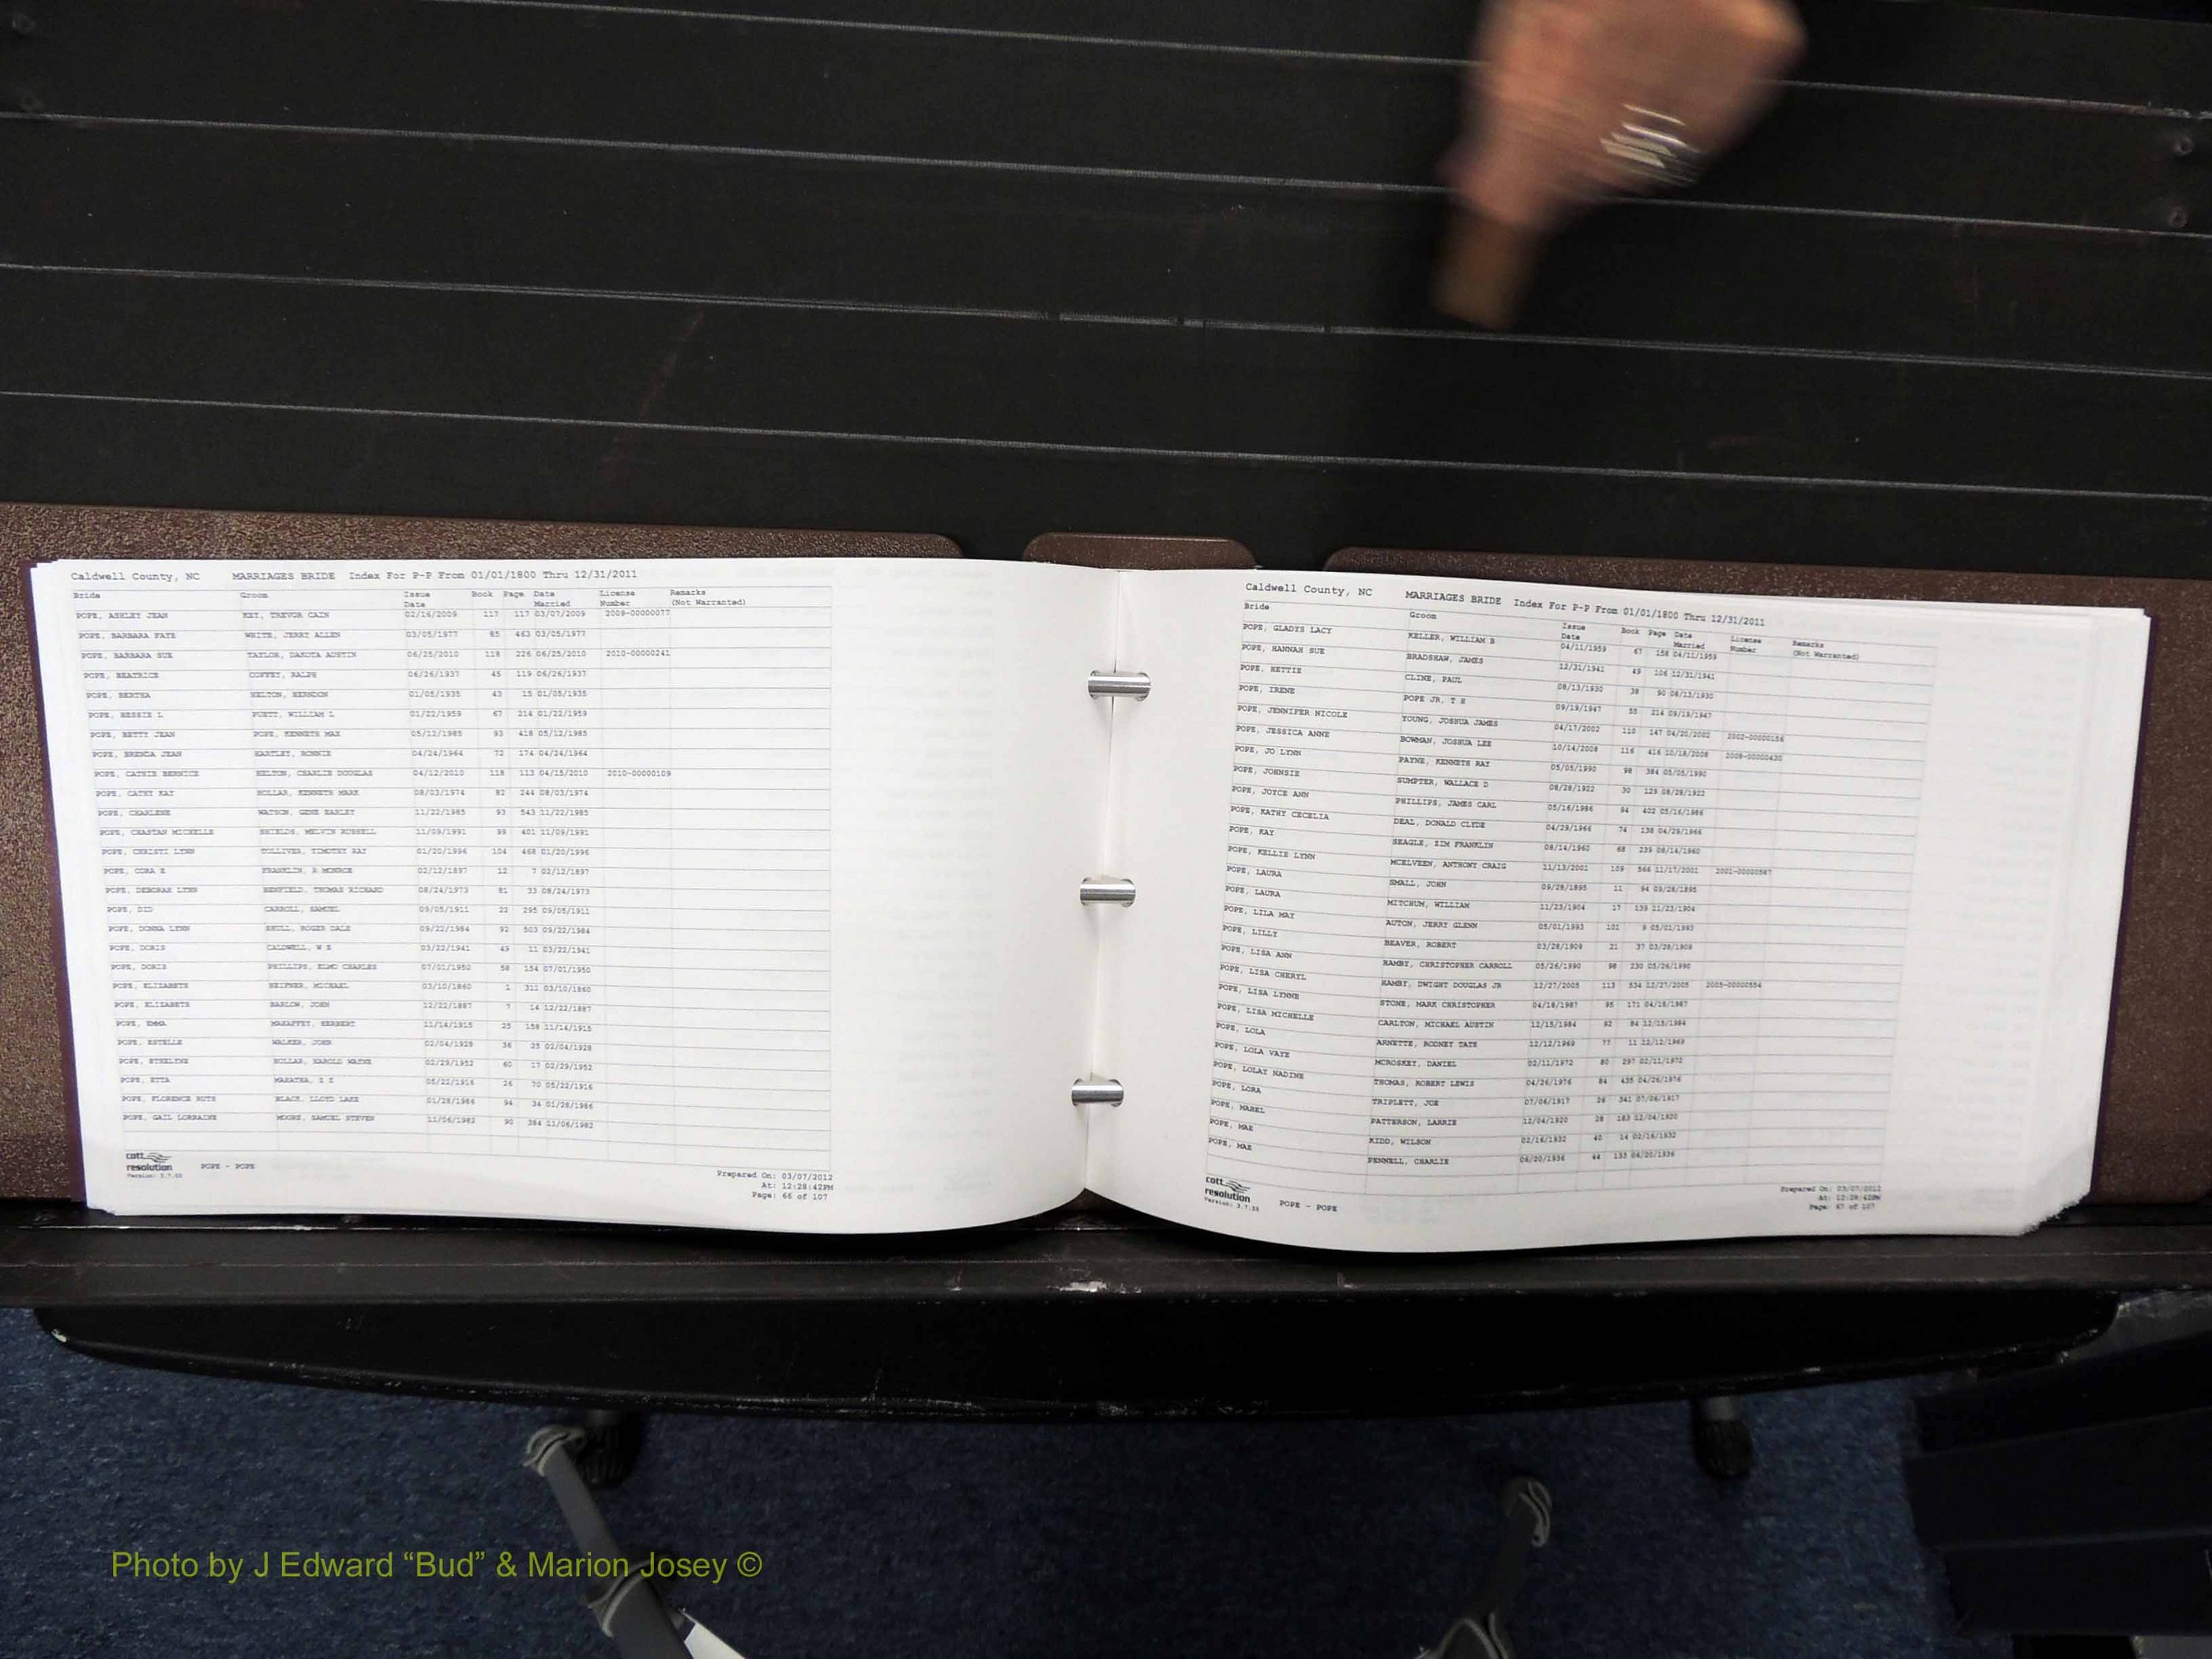 Caldwell County, NC MARRIAGES BRIDE Index For P-P From 01/01/1800 Thru 12/31/2011
Bride Groom Issue Date Book Page Date Married License Number Remarks (Not Warranted)
POPE, ASHLEY JEAN KEY, TREVOR CAIN 02/16/2009 117 117 03/07/2009 2009-00000077
POPE, BARBARA FAYE WHITE, JERRY ALLEN 03/05/1977 85 463 03/05/1977
POPE, BARBARA SUE TAYLOR, DAKOTA AUSTIN 06/25/2010 118 226 06/25/2010 2010-00000241
POPE, BEATRICE COFFEY, RALPH 06/26/1937 45 119 06/26/1937
POPE, BERTHA HELTON, HERNDON 01/05/1935 43 15 01/05/1935
POPE, BESSIE L PUETT, WILLIAM L 01/22/1959 67 214 01/22/1959
POPE, BETTY JEAN POPE, KENNETH MAX 05/12/1985 93 418 05/12/1985
POPE, BRENDA JEAN HARTLEY, RONNIE 04/24/1964 72 174 04/24/1964
POPE, CATHIE BERNICE HELTON, CHARLIE DOUGLAS 04/12/2010 118 113 04/15/2010 2010-00000109
POPE, CATHY KAY HOLLAR, KENNETH MARK 08/03/1974 82 244 08/03/1974
POPE, CHARLENE WATSON, GENE EARLEY 11/22/1985 93 543 11/22/1985
POPE, CHASTAN MICHELLE SHIELDS, MELVIN RUSSELL 11/09/1991 99 401 11/09/1991
POPE, CHRISTI LYNN TOLLIVER, TIMOTHY RAY 01/20/1996 104 468 01/20/1996
POPE, CORA E FRANKLIN, R MONROE 02/12/1897 12 7 02/12/1897
POPE, DEBORAH LYNN BENFIELD, THOMAS RICHARD 08/24/1973 81 33 08/24/1973
POPE, DID CARROLL, SAMUEL 09/05/1911 22 295 09/05/1911
POPE, DONNA LYNN SHULL, ROGER DALE 09/22/1984 92 503 09/22/1984
POPE, DORIS CALDWELL, W E 03/22/1941 49 11 03/22/1941
POPE, DORIS PHILLIPS, ELMO CHARLES 07/01/1950 58 154 07/01/1950
POPE, ELIZABETH HEIFNER, MICHAEL 03/10/1860 1 311 03/10/1860
POPE, ELIZABETH BARLOW, JOHN 12/22/1887 7 14 12/22/1887
POPE, EMMA MAHAFFEY, HERBERT 11/14/1915 25 158 11/14/1915
POPE, ESTELLE WALKER, JOHN 02/04/1928 36 25 02/04/1928
POPE, ETHELINE HOLLAR, HAROLD WAYNE 02/29/1952 60 17 02/29/1952
POPE, ETTA 05/22/1916 26 70 05/22/1916
POPE, FLORENCE RUTH BLACK, LLOYD LAKE 01/28/1986 94 34 01/28/1986
POPE, GAIL LORRAINE MOORE, SAMUEL STEVEN 11/06/1982 90 384 11/06/1982
cott
resolution POPE - POPE
Version: 3.7.53
Prepared On: 03/07/2012
At: 12:28:42PM
Page: 66 of 107
Caldwell County, NC MARRIAGES BRIDE Index For P-P From 01/01/1800 Thru 12/31/2011
Bride Groom Issue Date Book Page Date Married License Number Remarks (Not Warranted)
POPE, GLADYS LACY KELLER, WILLIAM B 04/11/1959 67 158 04/11/1959
POPE, HANNAH SUE BRADSHAW, JAMES 12/31/1941 49 106 12/31/1941
POPE, HETTIE CLINE, PAUL 08/13/1930 38 90 08/13/1930
POPE, IRENE POPE JR, T H 09/19/1947 55 214 09/19/1947
POPE, JENNIFER NICOLE YOUNG, JOSHUA JAMES 04/17/2002 110 147 04/20/2002 2002-00000156
POPE, JESSICA ANNE BOWMAN, JOSHUA LEE 10/14/2008 116 416 10/18/2008 2008-00000430
POPE, JO LYNN PAYNE, KENNETH RAY 05/05/1990 98 384 05/05/1990
POPE, JOHNSIE SUMPTER, WALLACE D 08/28/1922 30 129 08/28/1922
POPE, JOYCE ANN PHILLIPS, JAMES CARL 05/16/1986 94 402 05/16/1986
POPE, KATHY CECELIA DEAL, DONALD CLYDE 04/29/1966 74 138 04/29/1966
POPE, KAY SEAGLE, ZIM FRANKLIN 08/14/1960 68 239 08/14/1960
POPE, KELLIE LYNN MCELVEEN, ANTHONY CRAIG 11/13/2001 109 566 11/17/2001 2001-00000587
POPE, LAURA SMALL, JOHN 09/28/1895 11 94 09/28/1895
POPE, LAURA MITCHUM, WILLIAM 11/23/1904 17 139 11/23/1904
POPE, LILA MAY AUTON, JERRY GLENN 05/01/1993 101 9 05/01/1993
POPE, LILLY BEAVER, ROBERT 03/28/1909 21 37 03/28/1909
POPE, LISA ANN HAMBY, CHRISTOPHER CARROLL 05/26/1990 98 230 05/26/1990
POPE, LISA CHERYL HAMBY, DWIGHT DOUGLAS JR 12/27/2005 113 534 12/27/2005 2005-00000554
POPE, LISA LYNNE STONE, MARK CHRISTOPHER 04/18/1987 95 171 04/18/1987
POPE, LISA MICHELLE CARLTON, MICHAEL AUSTIN 12/15/1984 92 84 12/15/1984
POPE, LOLA ARNETTE, RODNEY TATE 12/12/1969 77 11 12/12/1969
POPE, LOLA VAYE MCROSKEY, DANIEL 02/11/1972 80 297 02/11/1972
POPE, LOLAY NADINE THOMAS, ROBERT LEWIS 04/26/1976 84 435 04/26/1976
POPE, LORA TRIPLETT, JOE 07/06/1917 26 341 07/06/1917
POPE, MABEL PATTERSON, LARRIE 12/04/1920 28 183 12/04/1920
POPE, MAE KIDD, WILSON 02/16/1932 40 14 02/16/1932
POPE, MAE PENNELL, CHARLIE 06/20/1936 44 133 06/20/1936
cott
resolution POPE - POPE
Version: 3.7.53
Prepared On: 03/07/2012
At: 12:28:42PM
Page: 67 of 107
Photo by J Edward “Bud” & Marion Josey ©